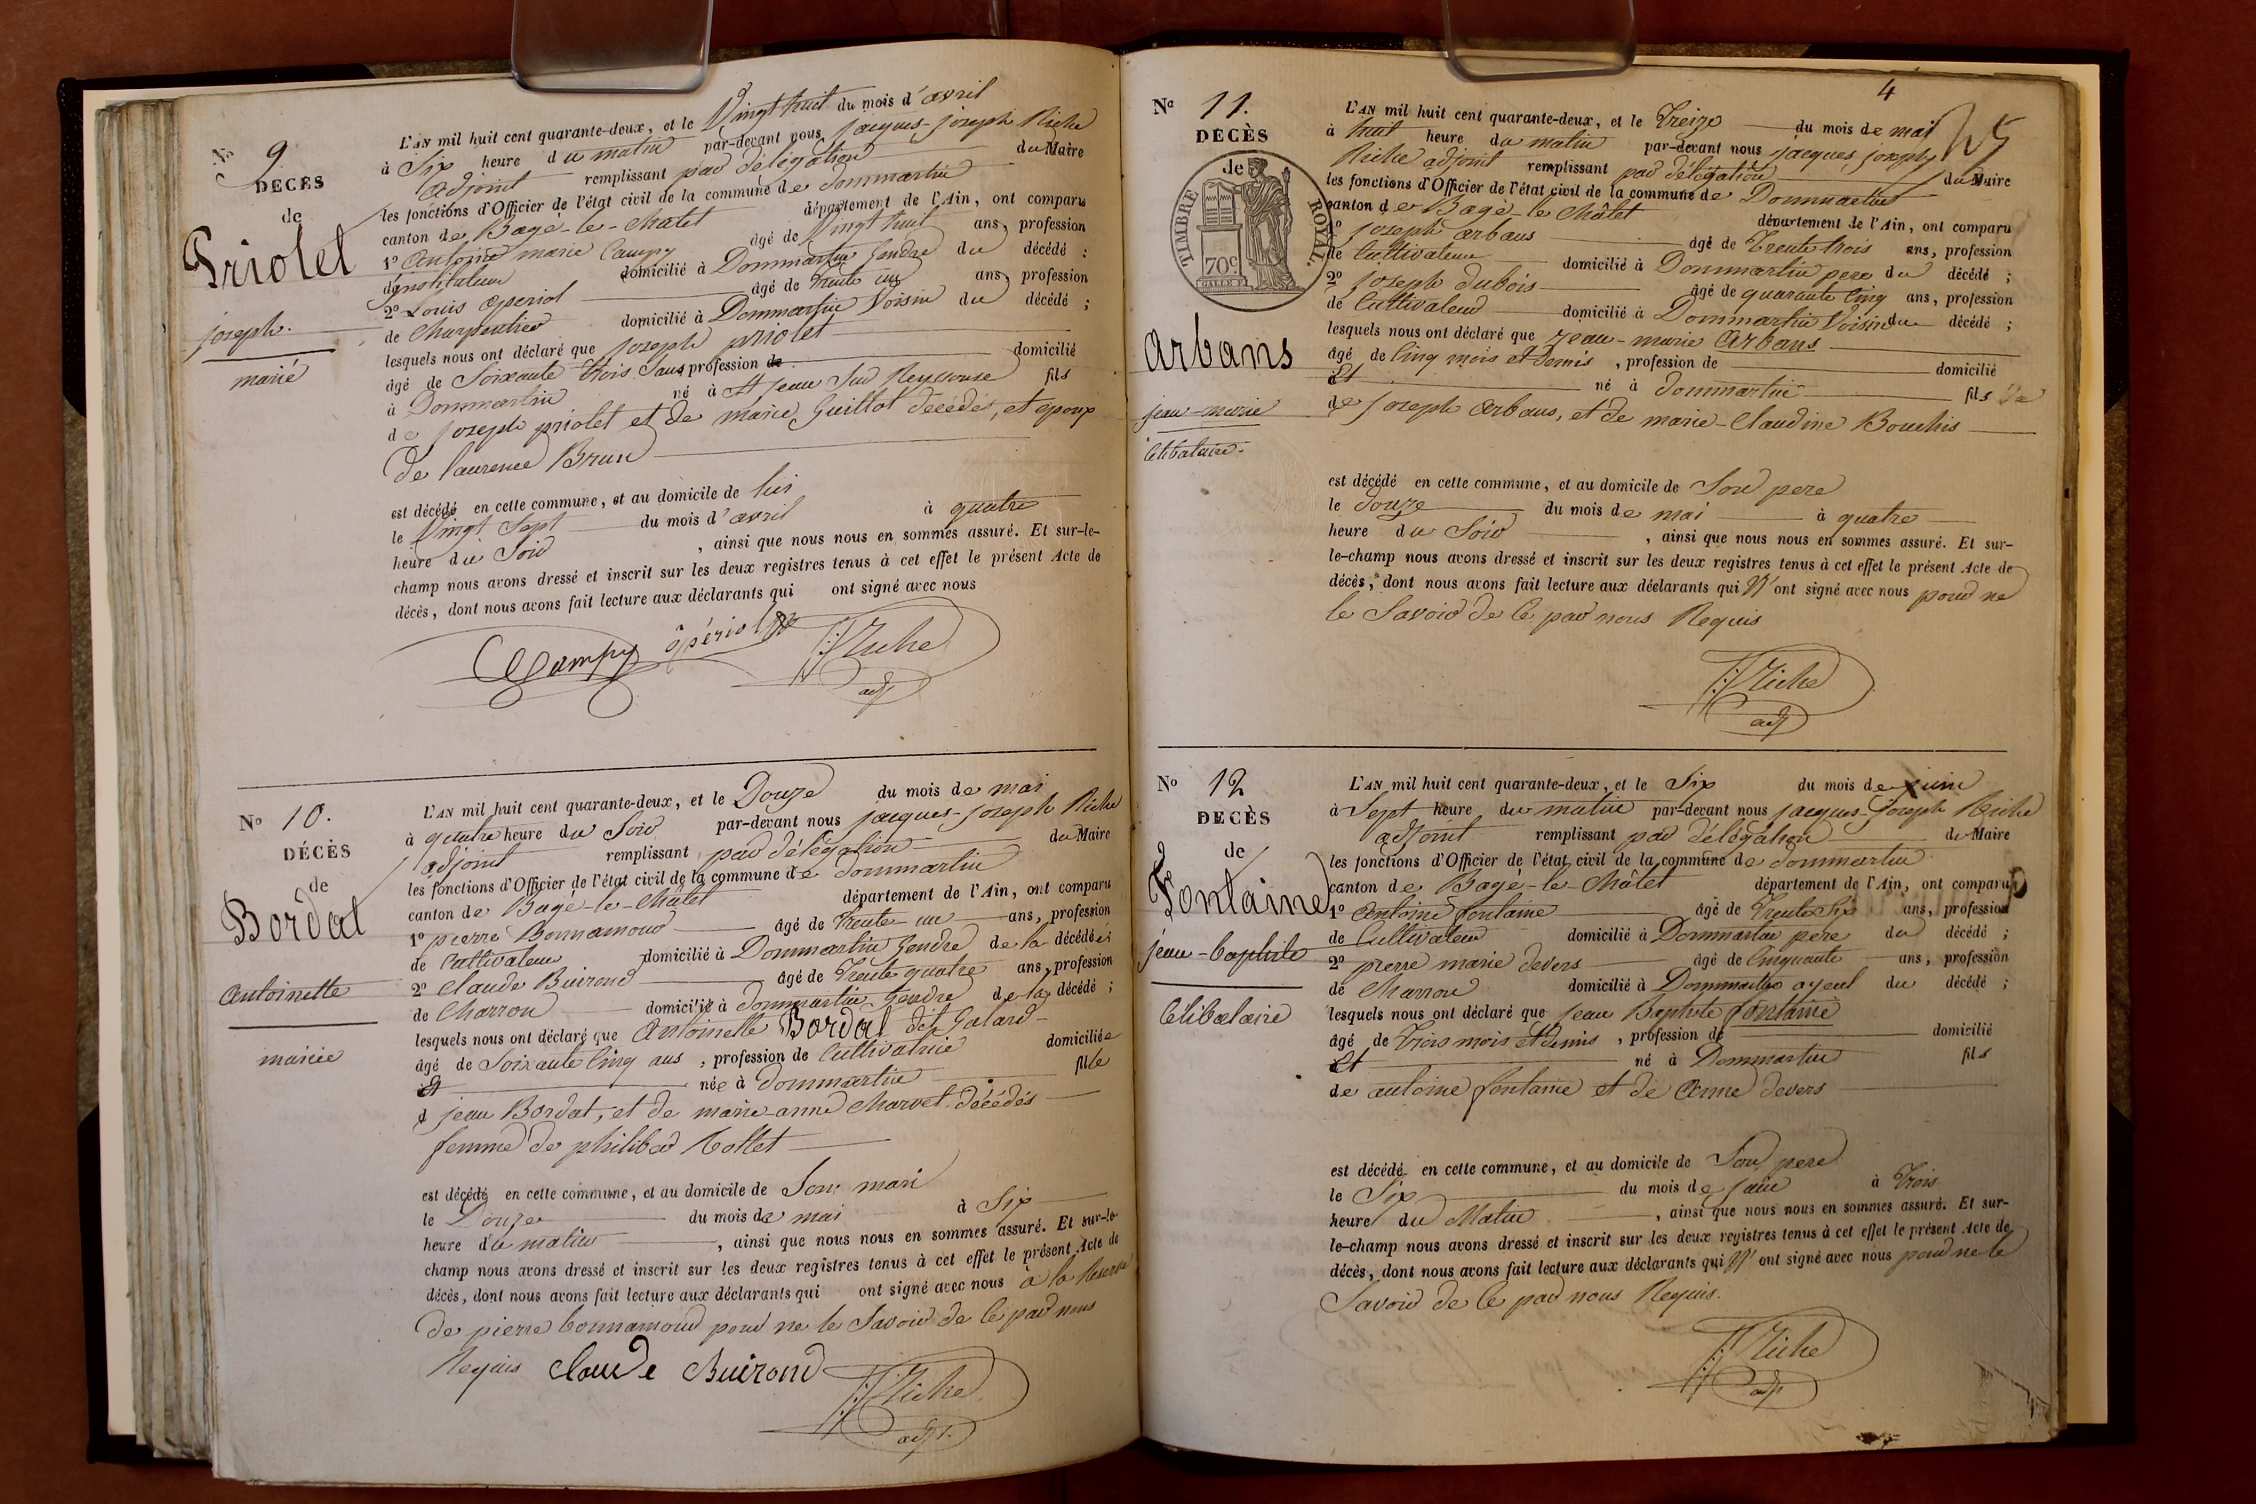 No 9
DÉCÈS
de
Priolet
joseph.
marié
L'AN mil huit cent quarante-deux, et le Vingt huit du mois d'avril
à Six heure du matin par-devant nous jacques-joseph Riche
adjoint remplissant par délégation du Maire
les fonctions d'Officier de l'état civil de la commune de Dommartin
canton de Bagé-le-Châtel département de l'Ain, ont comparu
1o Antoine marie Campy âgé de Vingt huit ans, profession
d'instituteur domicilié à Dommartin Gendre du décédé ;
2o Louis Operiol âgé de trente un ans, profession
de Charpentier domicilié à Dommartin Voisin du décédé ;
lesquels nous ont déclaré que joseph priolet
âgé de Soixante trois Sans profession de domicilié
à Dommartin né à St jean Sur Reyssouze fils
de joseph priolet et de marie Guillot décédés, et époux
de laurence Brun
est décédé en cette commune, et au domicile de lui
le Vingt Sept du mois d'avril à quatre
heure du Soir , ainsi que nous nous en sommes assuré. Et sur-le-
champ nous avons dressé et inscrit sur les deux registres tenus à cet effet le présent Acte de
décès, dont nous avons fait lecture aux déclarants qui ont signé avec nous
Campy opériol Riche
adj
No 10.
DÉCÈS
de
Bordat
Antoinette
mariée
L'AN mil huit cent quarante-deux, et le Douze du mois de mai
à quatre heure du Soir par-devant nous jacques-joseph Riche
adjoint remplissant par délégation du Maire
les fonctions d'Officier de l'état civil de la commune de Dommartin
canton de Bagé-le-Châtel département de l'Ain, ont comparu
1o pierre Bonnamour âgé de trente-un ans, profession
de Cultivateur domicilié à Dommartin Gendre de la décédée ;
2o Claude Buirond âgé de Trente quatre ans, profession
de Charron domicilié à Dommartin Gendre de la décédé ;
lesquels nous ont déclaré que Antoinette Bordat dit Galard
âgé de Soixante Cinq ans , profession de Cultivatrice domiciliée
à et née à Dommartin fille
d jean Bordat, et de marie-anne Charvet décédés
femme de philibert Collet
est décédé en cette commune, et au domicile de Son mari
le Douze du mois de mai à Six
heure du matin , ainsi que nous nous en sommes assuré. Et sur-le-
champ nous avons dressé et inscrit sur les deux registres tenus à cet effet le présent Acte de
décès, dont nous avons fait lecture aux déclarants qui ont signé avec nous à la Reserve
de pierre bonnamour pour ne le Savoir de ce par nous
Requis Claude Buirond Riche
adj.
4
No 11.
DÉCÈS
de
TIMBRE ROYAL.
70c
Arbans
jean-marie
Célibataire.
L'AN mil huit cent quarante-deux, et le Treize du mois de mai
à huit heure du matin par-devant nous jacques joseph
Riche adjoint remplissant par délégation du Maire
les fonctions d'Officier de l'état civil de la commune de Dommartin
canton de Bagé-le-Châtel département de l'Ain, ont comparu
1o joseph Arbans âgé de Trente trois ans, profession
de Cultivateur domicilié à Dommartin pere du décédé ;
2o joseph Dubois âgé de quarante Cinq ans, profession
de Cultivateur domicilié à Dommartin Voisin du décédé ;
lesquels nous ont déclaré que jean-marie Arbans
âgé de Cinq mois et Demis , profession de domicilié
à et né à Dommartin fils
de joseph Arbans, et de marie-Claudine Bouchis
est décédé en cette commune, et au domicile de Son pere
le Douze du mois de mai à quatre
heure du Soir , ainsi que nous nous en sommes assuré. Et sur-
le-champ nous avons dressé et inscrit sur les deux registres tenus à cet effet le présent Acte de
décès, dont nous avons fait lecture aux déclarants qui N'ont signé avec nous pour ne
le Savoir de ce par nous Requis
Riche
adj
No 12
DÉCÈS
de
Fontaine
jean-baptiste
Célibataire
L'AN mil huit cent quarante-deux, et le Six du mois de juin
à Sept heure du matin par-devant nous jacques-Joseph Riche
adjoint remplissant par délégation du Maire
les fonctions d'Officier de l'état civil de la commune de Dommartin
canton de Bagé-le-Châtel département de l'Ain, ont comparu
1o Antoine fontaine âgé de Trente Six ans, profession
de Cultivateur domicilié à Dommartin pere du décédé ;
2o pierre marie devers âgé de Cinquante ans, profession
de Charron domicilié à Dommartin ayeul du décédé ;
lesquels nous ont déclaré que jean Baptiste fontaine
âgé de Trois mois et Demis , profession de domicilié
à et né à Dommartin fils
de antoine fontaine et de Anne devers
est décédé en cette commune, et au domicile de Son pere
le Six du mois de juin à Trois
heure du Matin , ainsi que nous nous en sommes assuré. Et sur-
le-champ nous avons dressé et inscrit sur les deux registres tenus à cet effet le présent Acte de
décès, dont nous avons fait lecture aux déclarants qui N'ont signé avec nous pour ne le
Savoir de ce par nous Requis.
Riche
adj